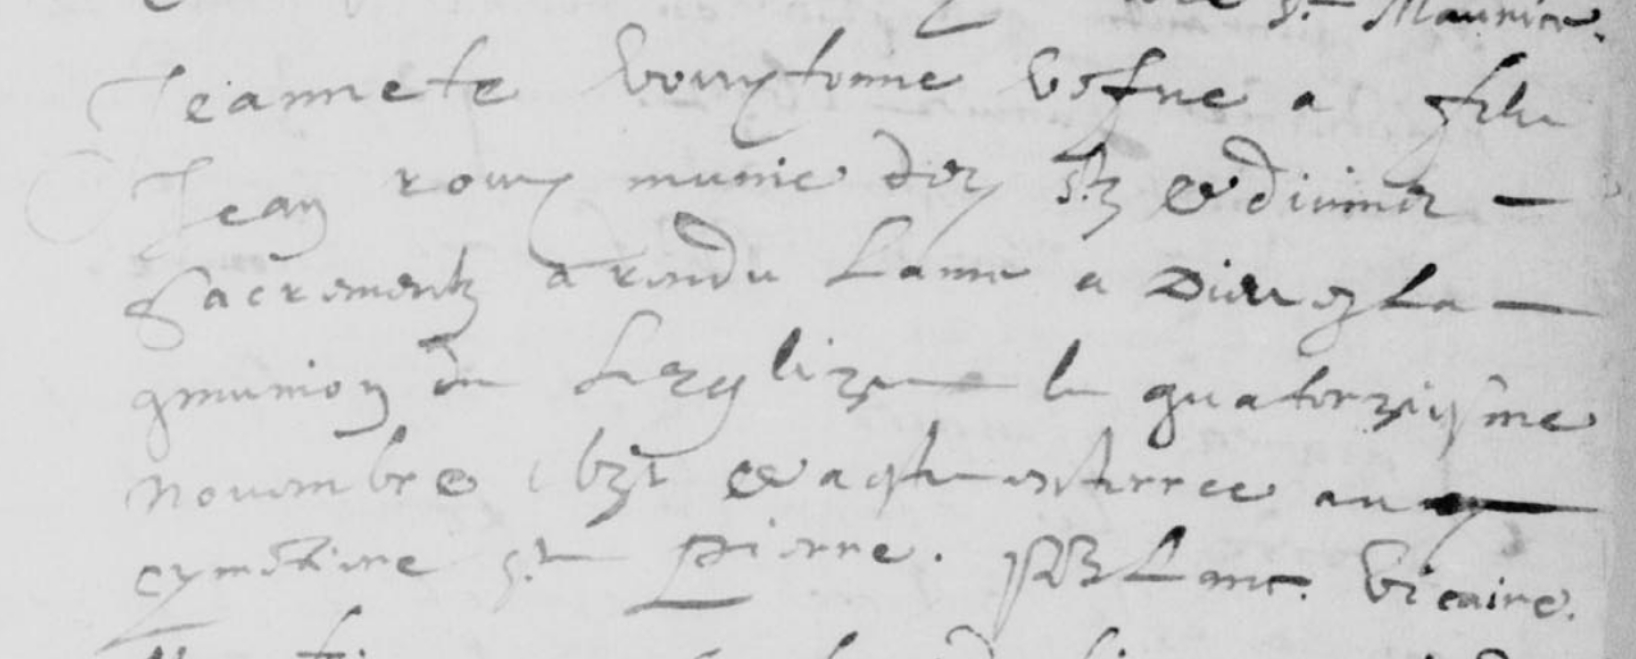 St Maurice.
Jeannete vefve a feu
Jean roux munie des Sts et divins
Sacrements a rendu Lame a Dieu en La
communion de Lesglize le quatorziesme
Novembre et a este enterree au
cymetiere St Pierre. Vicaire.